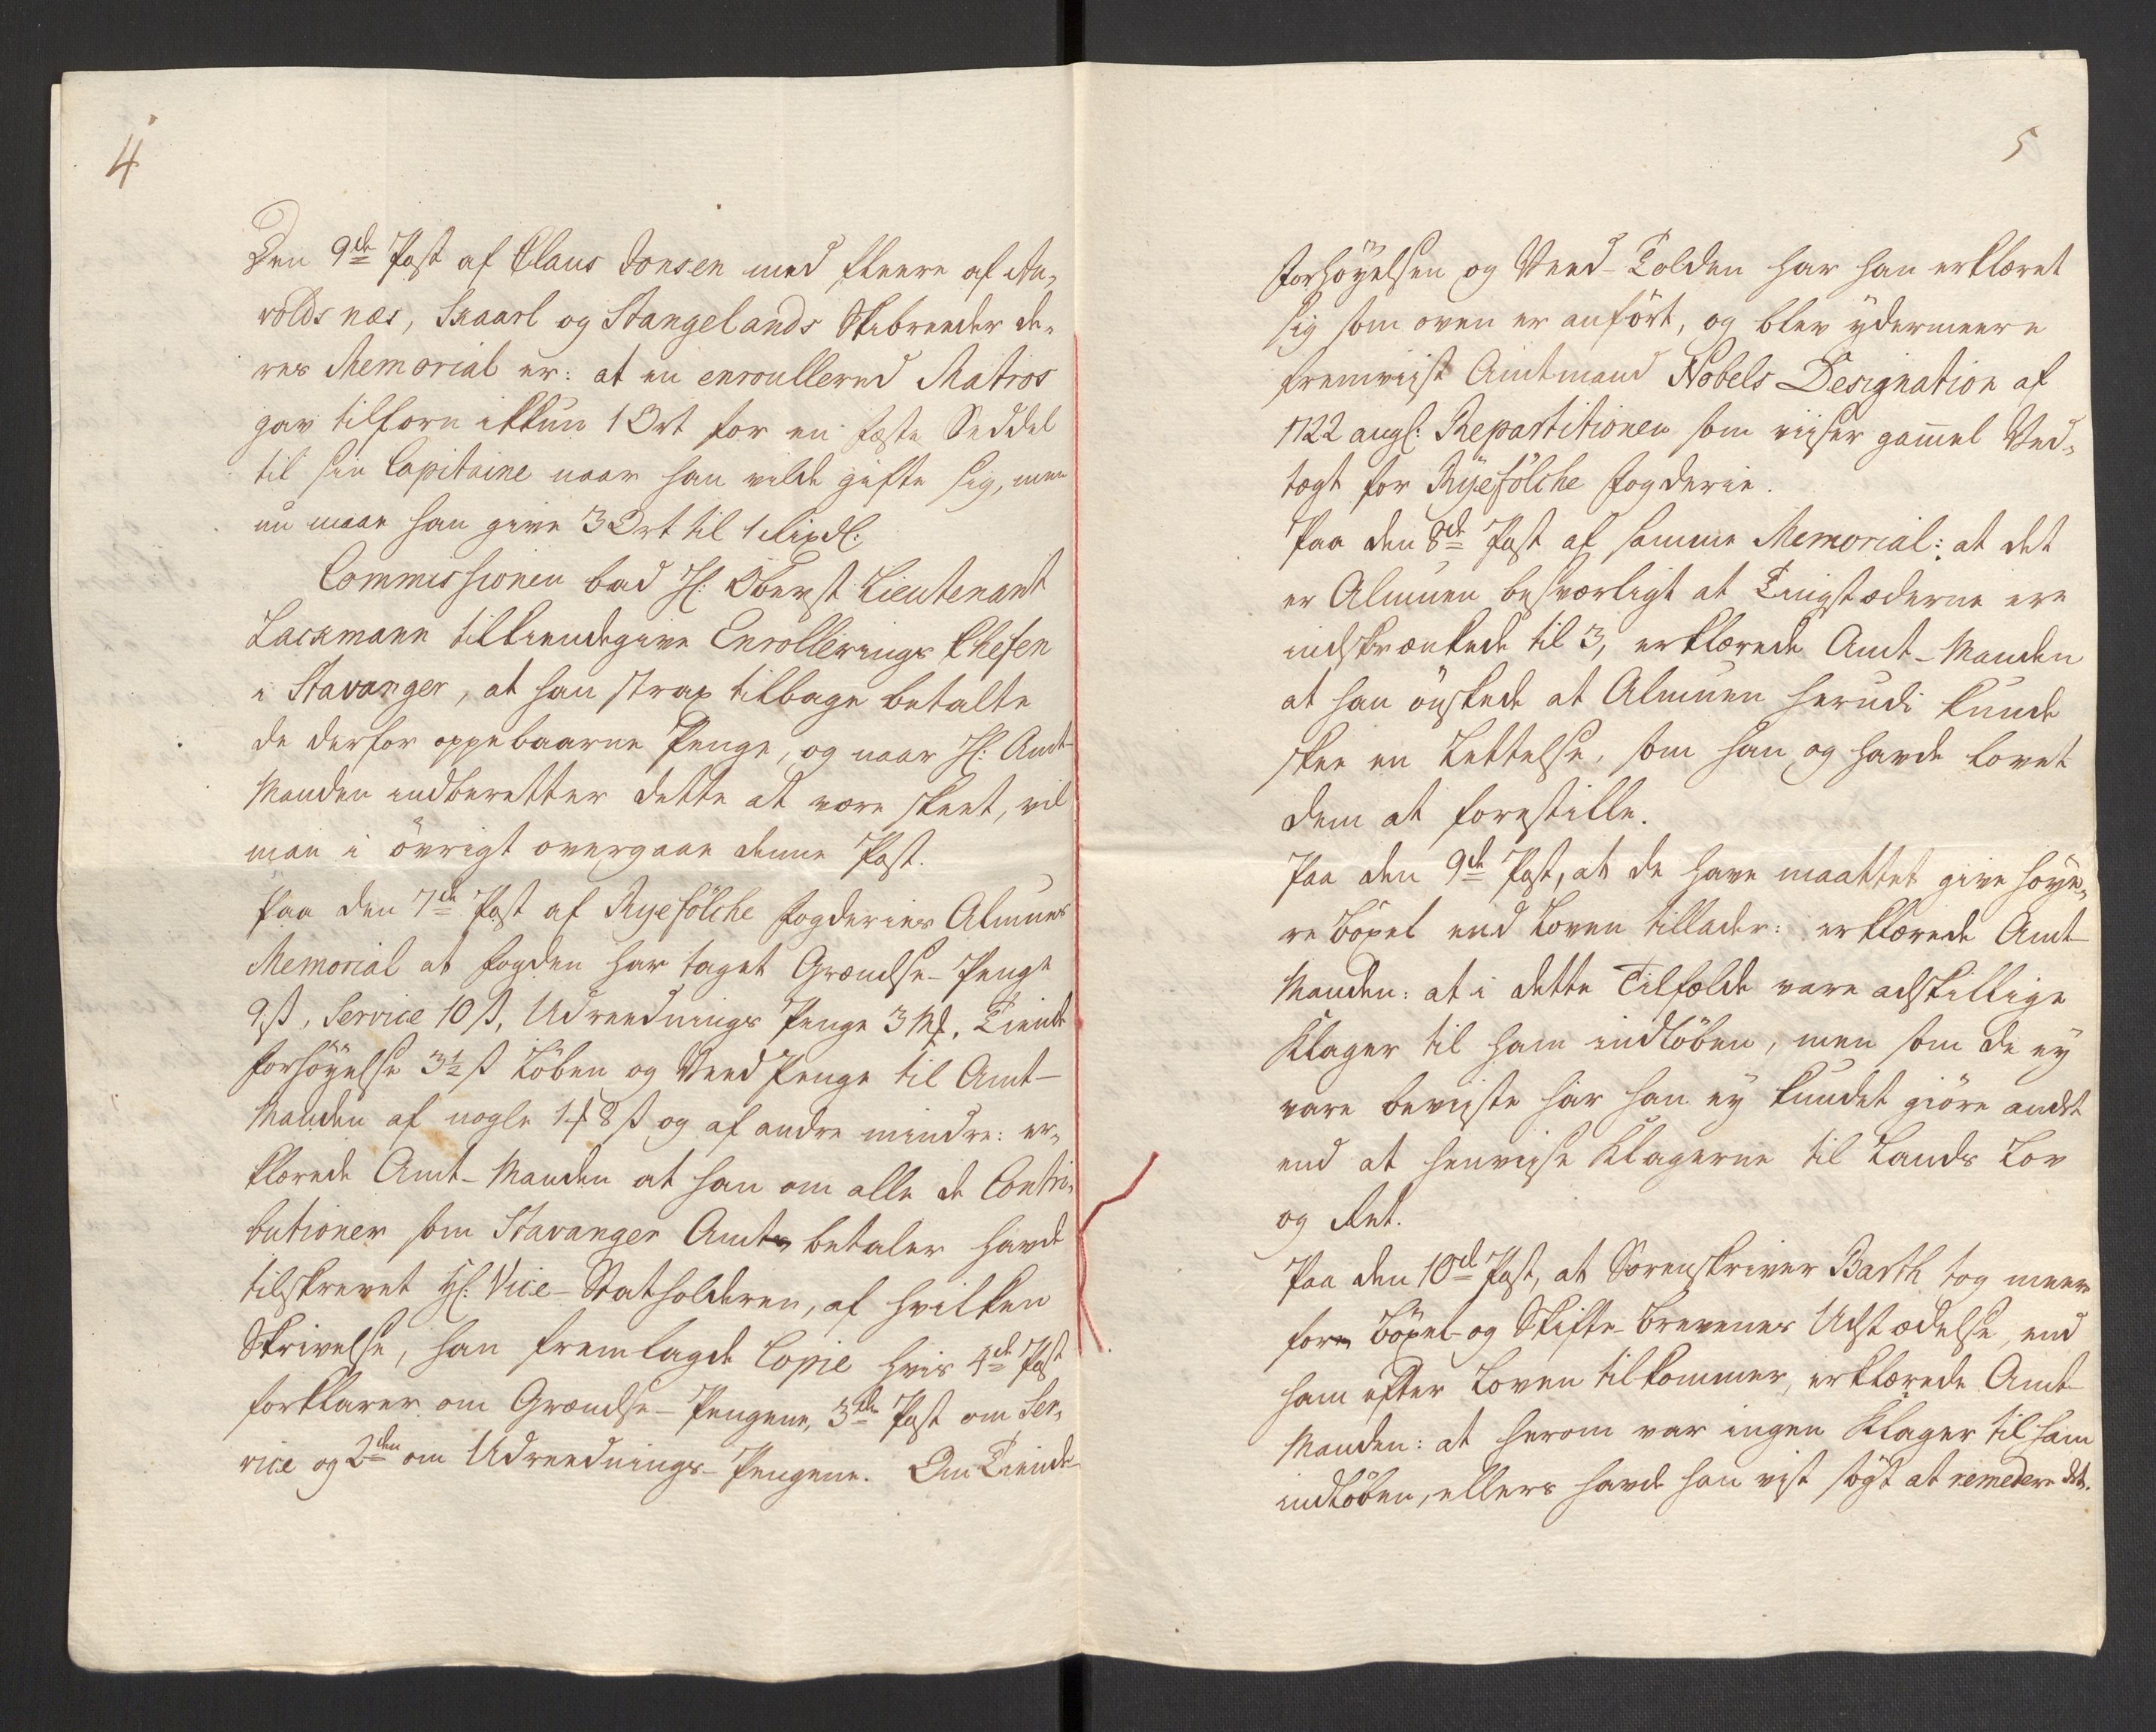 4
Den 9de Post af Claus Jonsen med fleere af Au¬
volds næs, Skaarl og Stangelands Skibreeder de¬
res Memorial er: at en enroullered Matros
gav tilforn ikkun 1 Ort for en Fæste Seddel
til sin Capitaine naar han vilde gifte sig, men
nu maae han give 3 Ort til 1 Rixdl:
Commissionen bad Hr: Oberst Lieutenant
Lackmann tilkiendegive Enrollerings Chefen
i Stavanger, at han strax tilbage betalte
de derfor oppebaarne Penge, og naar Hr: Amt-
Manden indberetter dette at være skeet, vil
man i övrigt overgaae denne Post.
Paa den 7de Post af Ryefölche Fogderies Almues
Memorial at Fogden har taget Grændse-Penge
9 ß, Service 10 ß, Udreednings Penge 3 Mk, Tiende
Forhöyelse 3½ ß Löben og Veed Penge til Amt-
Manden af nogle 1 Mk 8 ß og af andre mindre: er¬
klærede Amt-Manden at han om alle de Contri¬
butioner som Stavanger Amt betaler havde
tilskrevet Hr: Vice-Statholderen, af hvilken
Skrivelse, han fremlagde Copie hvis 4de Post
forklarer om Grændse-Pengene, 3die Post om Ser¬
vice og 2den om Udreednings-Pengene. Om Tiende-
5
Forhöyelsen og Veed-Tolden har han erklæret
sig som oven er anfört, og blev ydermeere
fremviist Amtmand Nobels Designation af
1722 angl: Repartitionen som viiser gammel Ved¬
tægt for Ryefölche Fogderie.
Paa den 8de Post af samme Memorial: at det
er Almuen besværligt at Tingstæderne ere
indskrænkede til 3, erklærede Amt-Manden
at han önskede at Almuen herudi kunde
skee en Lettelse, som han og havde lovet
dem at forestille.
Paa den 9de Post, at de have maattet give höye¬
re Böxel end Loven tillader: erklærede Amt-
Manden: at i dette Tilfælde vare adskillige
Klager til ham indlöben, men som de ey
vare beviiste har han ey kundet giöre andet
end at henviise Klagerne til Lands Lov
og Ret.
Paa den 10de Post, at Sorenskriver Barth tog meere
for Böxel- og Skifte-Brevenes Udstædelse, end
ham efter Loven tilkommer, erklærede Amt-
Manden: at herom var ingen Klager til ham
indlöben, ellers havde han vist sögt at remedere det.